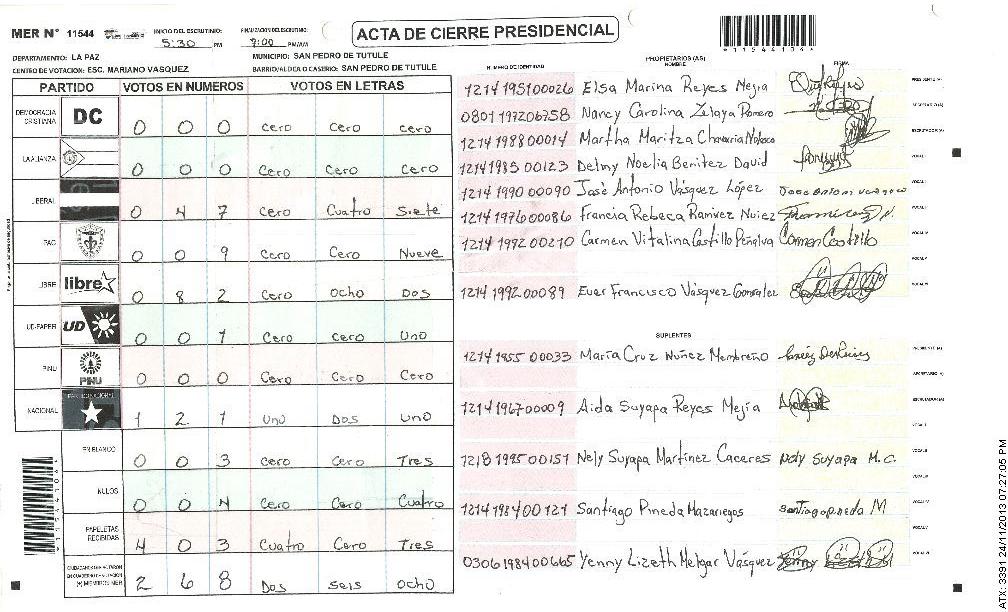 MER N° 11544
INICIO DEL ESCRUTINIO: 5:30 PM
FINALIZACION DEL ESCRUTINIO: 7:00 PM/AM
ACTA DE CIERRE PRESIDENCIAL
DEPARTAMENTO: LA PAZ
MUNICIPIO: SAN PEDRO DE TUTULE
CENTRO DE VOTACION: ESC. MARIANO VASQUEZ
BARRIO/ALDEA O CASERIO: SAN PEDRO DE TUTULE
PARTIDO VOTOS EN NUMEROS VOTOS EN LETRAS
DEMOCRACIA CRISTIANA DC 0 0 0 cero cero cero
LA ALIANZA 0 0 0 Cero Cero Cero
LIBERAL 0 4 7 Cero Cuatro Siete
PAC 0 0 9 Cero Cero Nueve
LIBRE libre 0 8 2 Cero Ocho Dos
UD-FAPER UD 0 0 1 Cero Cero Uno
PINU PINU 0 0 0 Cero Cero Cero
NACIONAL 1 2 1 Uno Dos Uno
EN BLANCO 0 0 3 Cero Cero Tres
NULOS 0 0 4 Cero Cero Cuatro
PAPELETAS RECIBIDAS 4 0 3 Cuatro Cero Tres
2 6 8 Dos seis ocho
NUMERO DE IDENTIDAD
PROPIETARIOS (AS)
NOMBRE
FIRMA
1214195100026 Elsa Marina Reyes Mejia
0801197206758 Nancy Carolina Zelaya Romero
1214198800014 Martha Maritza
12141985 00123 Delmy Noelia Benitez David
1214 1990 00090 José Antonio Vásquez López
1214197600086 Francia Rebeca Ramirez Nuñez
1214 199200210 Carmen Vitalina Castillo Peñalva Carmen Castillo
1214 199200089 Euer Francisco Vásquez Gonzalez
SUPLENTES
1214 1955 00033 María Cruz Nuñez Membreño
1214196700009 Aida Suyapa Reyes Mejía
1218 1995 00151 Nely Suyapa Martinez Caceres Nely Suyapa M.C.
1214 1984 00121 Santiago Pineda Mazariegos santiago pineda M
0306198400665 Yenny Lizeth Melgar Vásquez Yenny
115441041
ATX: 3391 24/11/2013 07:27:05 PM